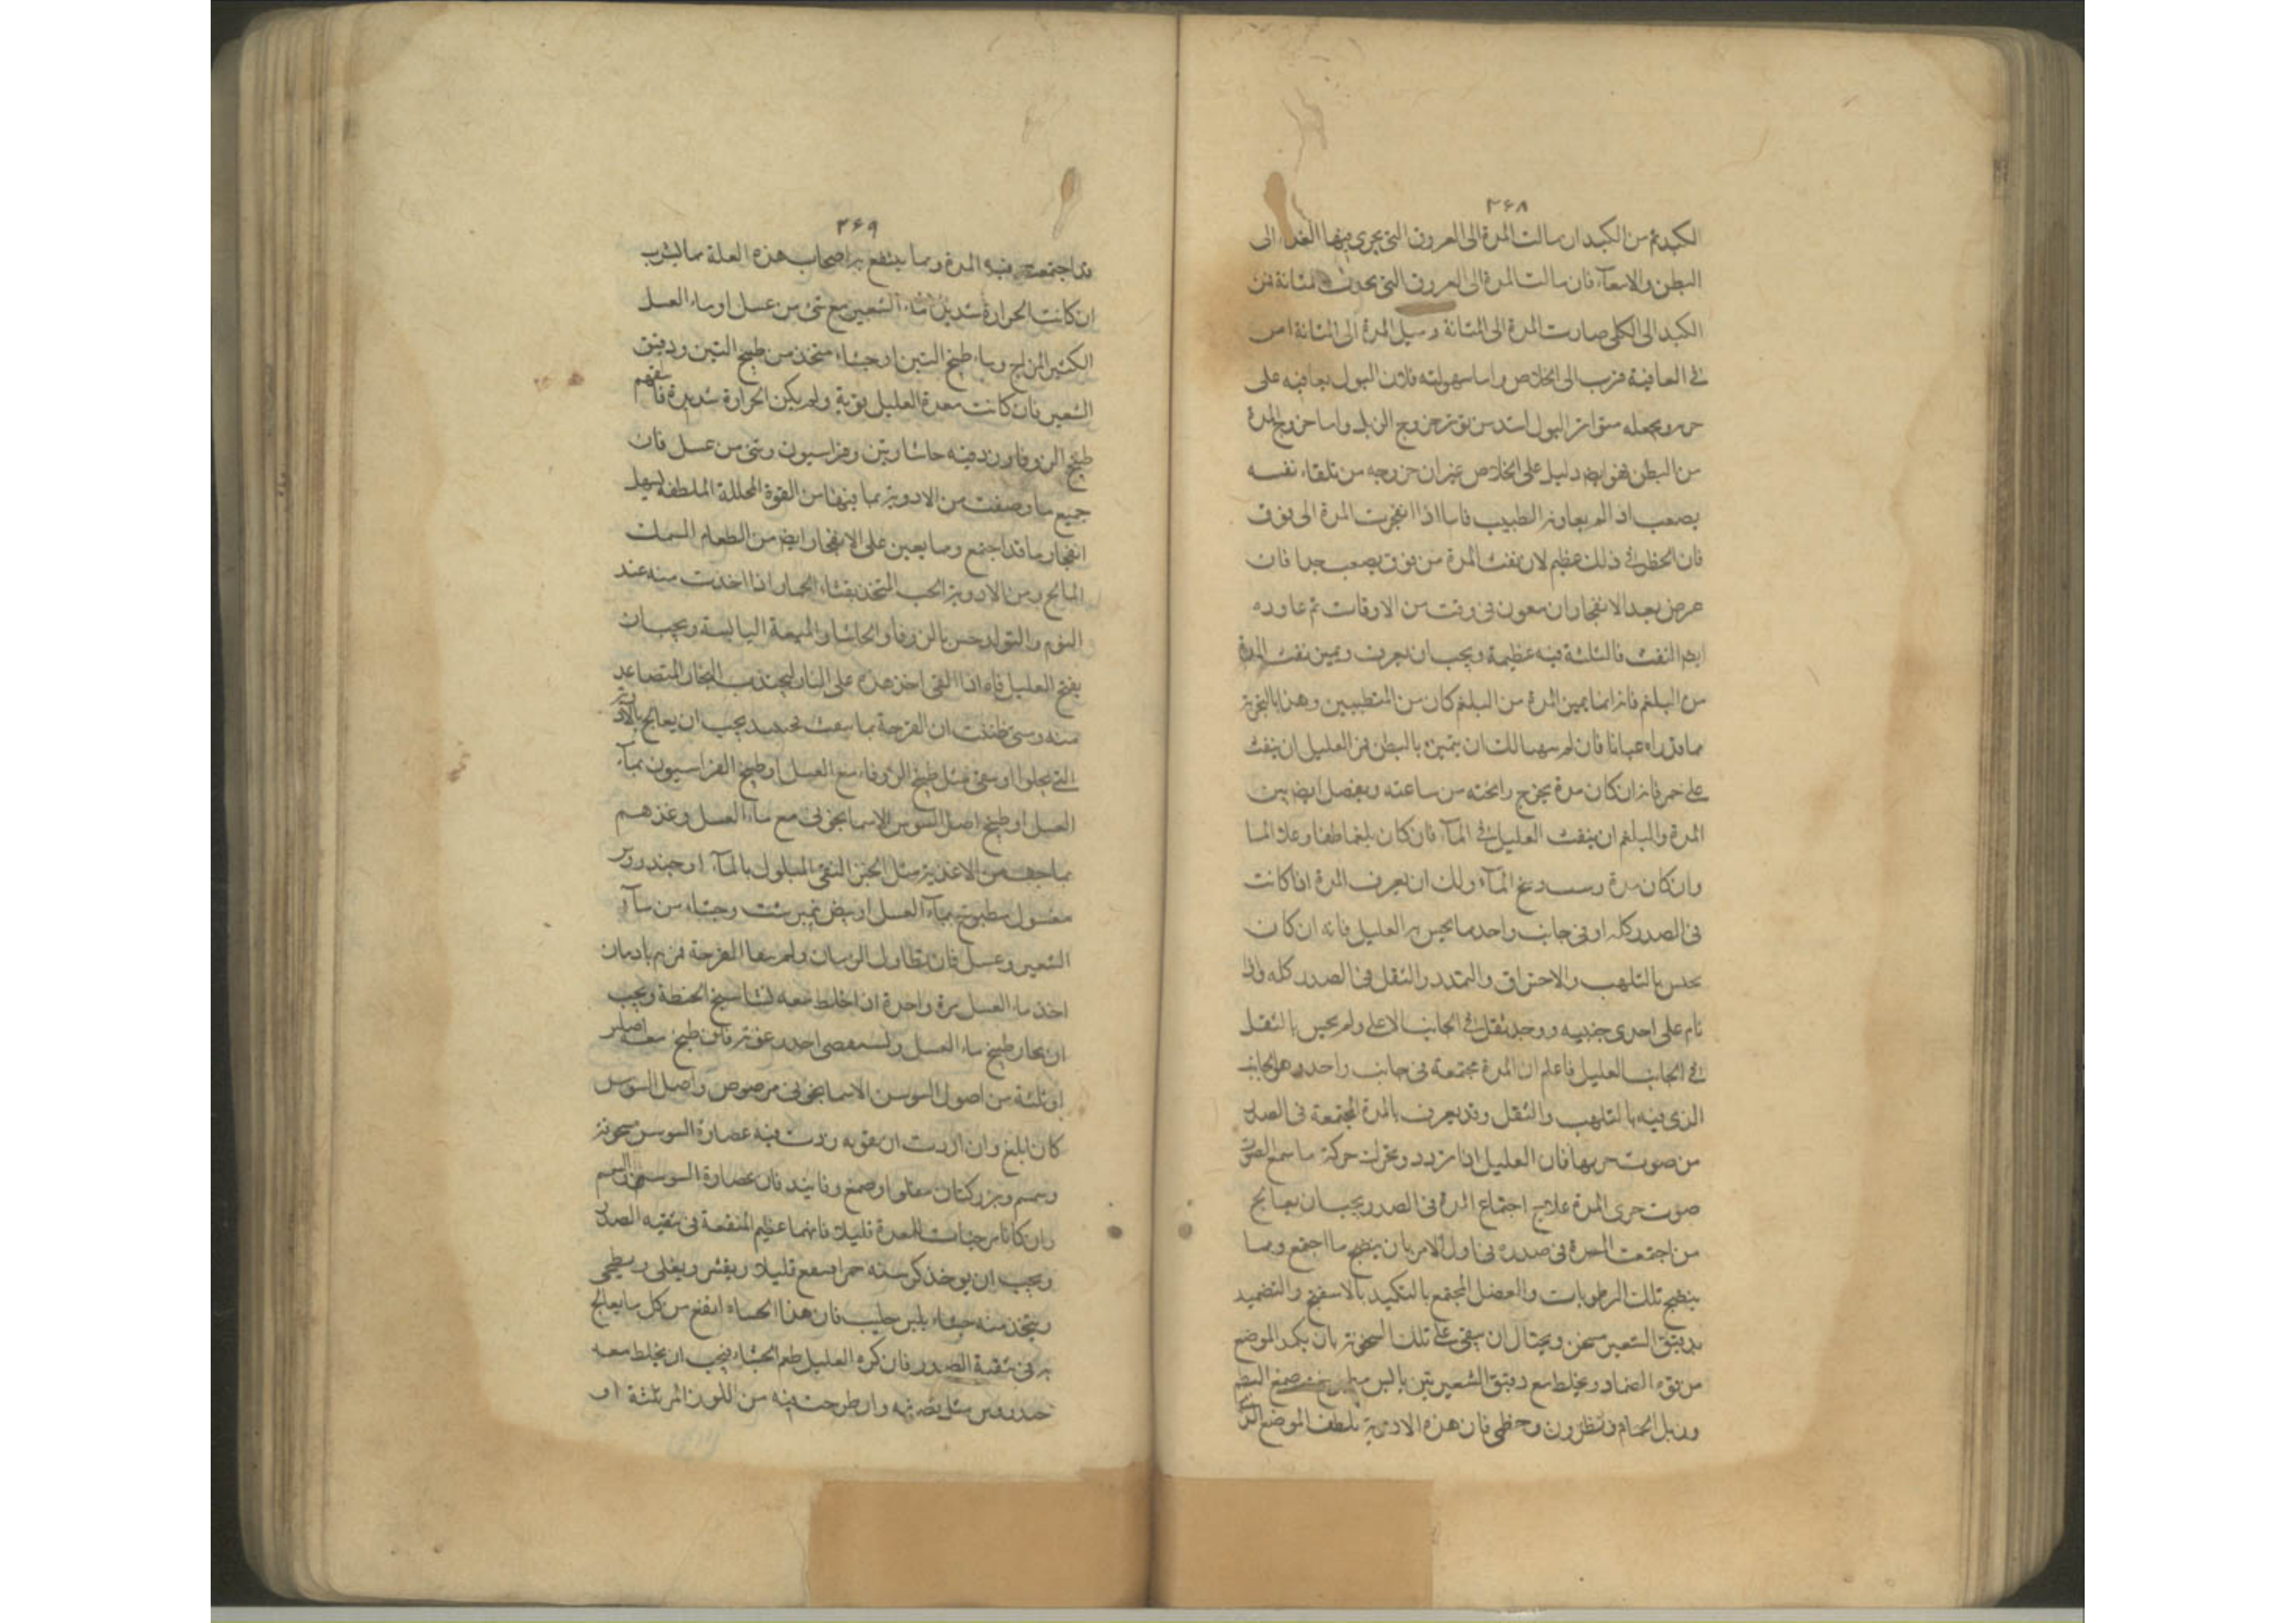 ٢٦٨
الكبد ثم من الكبد ان سالت المرة الى العروق التى يجرى فيها الغذا الى
البطن والامعآء فان سالت المرة الى العروق التى يحدث المثانة من
الكبد الى الكلى صارت المرة الى المثانة وسيل المرة الى المثانة امر
فى العافية قرب الى الخلاص واما سهولته فلان البول يعافيه على
ويجعله متواتر البول اشد من تواتر خروج الزبل واما خروج المرة
من البطن فهو ايضا دليل على الخلاص غير ان خروجه من تلقاء نفسه
يصعب اذا لم يعاونه الطبيب فاما اذا انفجرت المرة الى فوق
فان الخطر فى ذلك عظيم لان نفث المرة من فوق يصعب جدا فان
عرض بعد الانفجار ان معون فى وقت من الاوقات ثم عاوده
ايضا النفث فالثلثة فيه عظيمة ويجب ان يعرف ويميز نفث المرة
من البلغم فانه انما يميز المرة من البلغم كان من المتطببين وهذا بالتجربة
مما قد راه عيانا فان لم يتهيا لك ان يتميز بالبطن فمر العليل ان ينفث
على خمر فانه ان كان مدة يخرج رائحته من ساعته ويفصل ايضا بين
المرة والبلغم ان ينفث العليل فى المآء فان كان بلغما طفا وعلا الما
وان كان مدة رسب فى المآء ولك ان يعرف المرة اذا كانت
فى الصدر كله او فى جانب واحد مما يحس به العليل فانه ان كان
يحس بالتلهب والاحتراق والتمدد والثقل فى الصدر كله واذا
نام على احدى جنبيه ووجد ثقل فى الجانب الاعلى ولم يحس بالثقل
فى الجانب العليل فاعلم ان المرة مجتمعة فى جانب واحد وهو الجانب
الذى فيه بالتلهب والثقل وقد يعرف بالمرة المجتمعة فى الصدر
من صوت جريها فان العليل اذا تردد وتحرك حركة ما سمع الصوت
صوت جرى المرة علاج اجتماع المرة فى الصدر يجب ان يعالج
من اجتمعت المرة فى صدره فى اول الامر بان ينضج ما اجتمع ومما
ينضج تلك الرطوبات والفضل المجتمع بالتكميد بالاسفنج والتضميد
بدقيق الشعير سخن ويحتال ان يبقى على تلك السخونة بان يكمد الموضع
من فوق الضماد ويخلط مع دقيق الشعير تين يابس صمغ البطم
وزبل الحمام ونطرون وخطمى فان هذه الادوية تلطف الموضع الذى
٢٦٩
قد اجتمعت فيه المدة ومما ينتفع به اصحاب هذه العلة مما يشرب
ان كانت الحرارة شديدة ماء الشعير مع شئ من عسل او ماء العسل
الكثير المزاج وماء طبيخ التين او حشاء متخذ من طبيخ التين ودقيق
الشعير فان كانت معدة العليل قوية ولم يكن الحرارة شديدة فاسقهم
طبيخ الزوفا وزد فيه حاشا وتين وفراسيون وشئ من عسل فان
جميع ما وصفت من الادوية بما فيها من القوة المحللة الملطفة يسهل
انفجار ما قد اجتمع ومما يعين على الانفجار ايضا من الطعام السمك
المالح ومن الادوية الحب المتخذ بقثاء الحمار اذا اخذت منه عند
النوم والتولد حس بالزوفا والحاشا والميعة اليابسة ويجب ان
يفتح العليل فاه اذا القى احد هذه على النار ليجتذب البخار المتصاعد
منه ومتى ظننت ان القرحة مما يجب ان يعالج بالادوية
التى تجلوا او سقى مثل طبيخ الزوفاء مع العسل او طبيخ الفراسيون بمآء
العسل او طبيخ اصل السوس الاسمانجونى مع ماء العسل وغذهم
بما جف من الاغذية مثل الخبز النقى المبلول بالمآء او خندروس
مغسول مطبوخ بمآء العسل او بيض نمبرشت وحشاء من مآء
الشعير وعسل فان تطاول الزمان ولم القرحة فمره بادمان
اخذ ماء العسل مرة واحدة ان اخلط معه نشاسبج الحنطة ويجب
ان يجاد طبيخ ماء العسل فان طبخ معه اصلين
او ثلثة من اصول السوسن الاسمانجونى مرضوض واصل السوس
كان ابلغ وان اردت ان تقويه زدت فيه عصارة السوس معجونة
وسمسم وبزر كتان مقلو او صمغ وفانيذ فان عصارة السوس والسمسم
وان كانا من جنات المعدة قليلا فانهما عظيم المنفعة فى تنقية الصدر
ويجب ان يوخذ كرسنه حمرا ينقع قليلا ويقشر ويغلى ويطحى
ويتخذ منه حشاء بلبن حليب فان هذا الحساء انفع من كل ما يعالج
به فى تنقية الصدر فان كره العليل طعم الحشاء فيجب ان يخلط معه
خندروس مثل نصفه وان طرحت فيه من اللوز المر ثلثة او